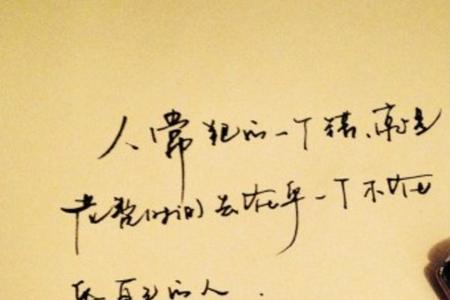 人常犯的一个错、就是
花整时间去在乎一个不在
乎自己的人.